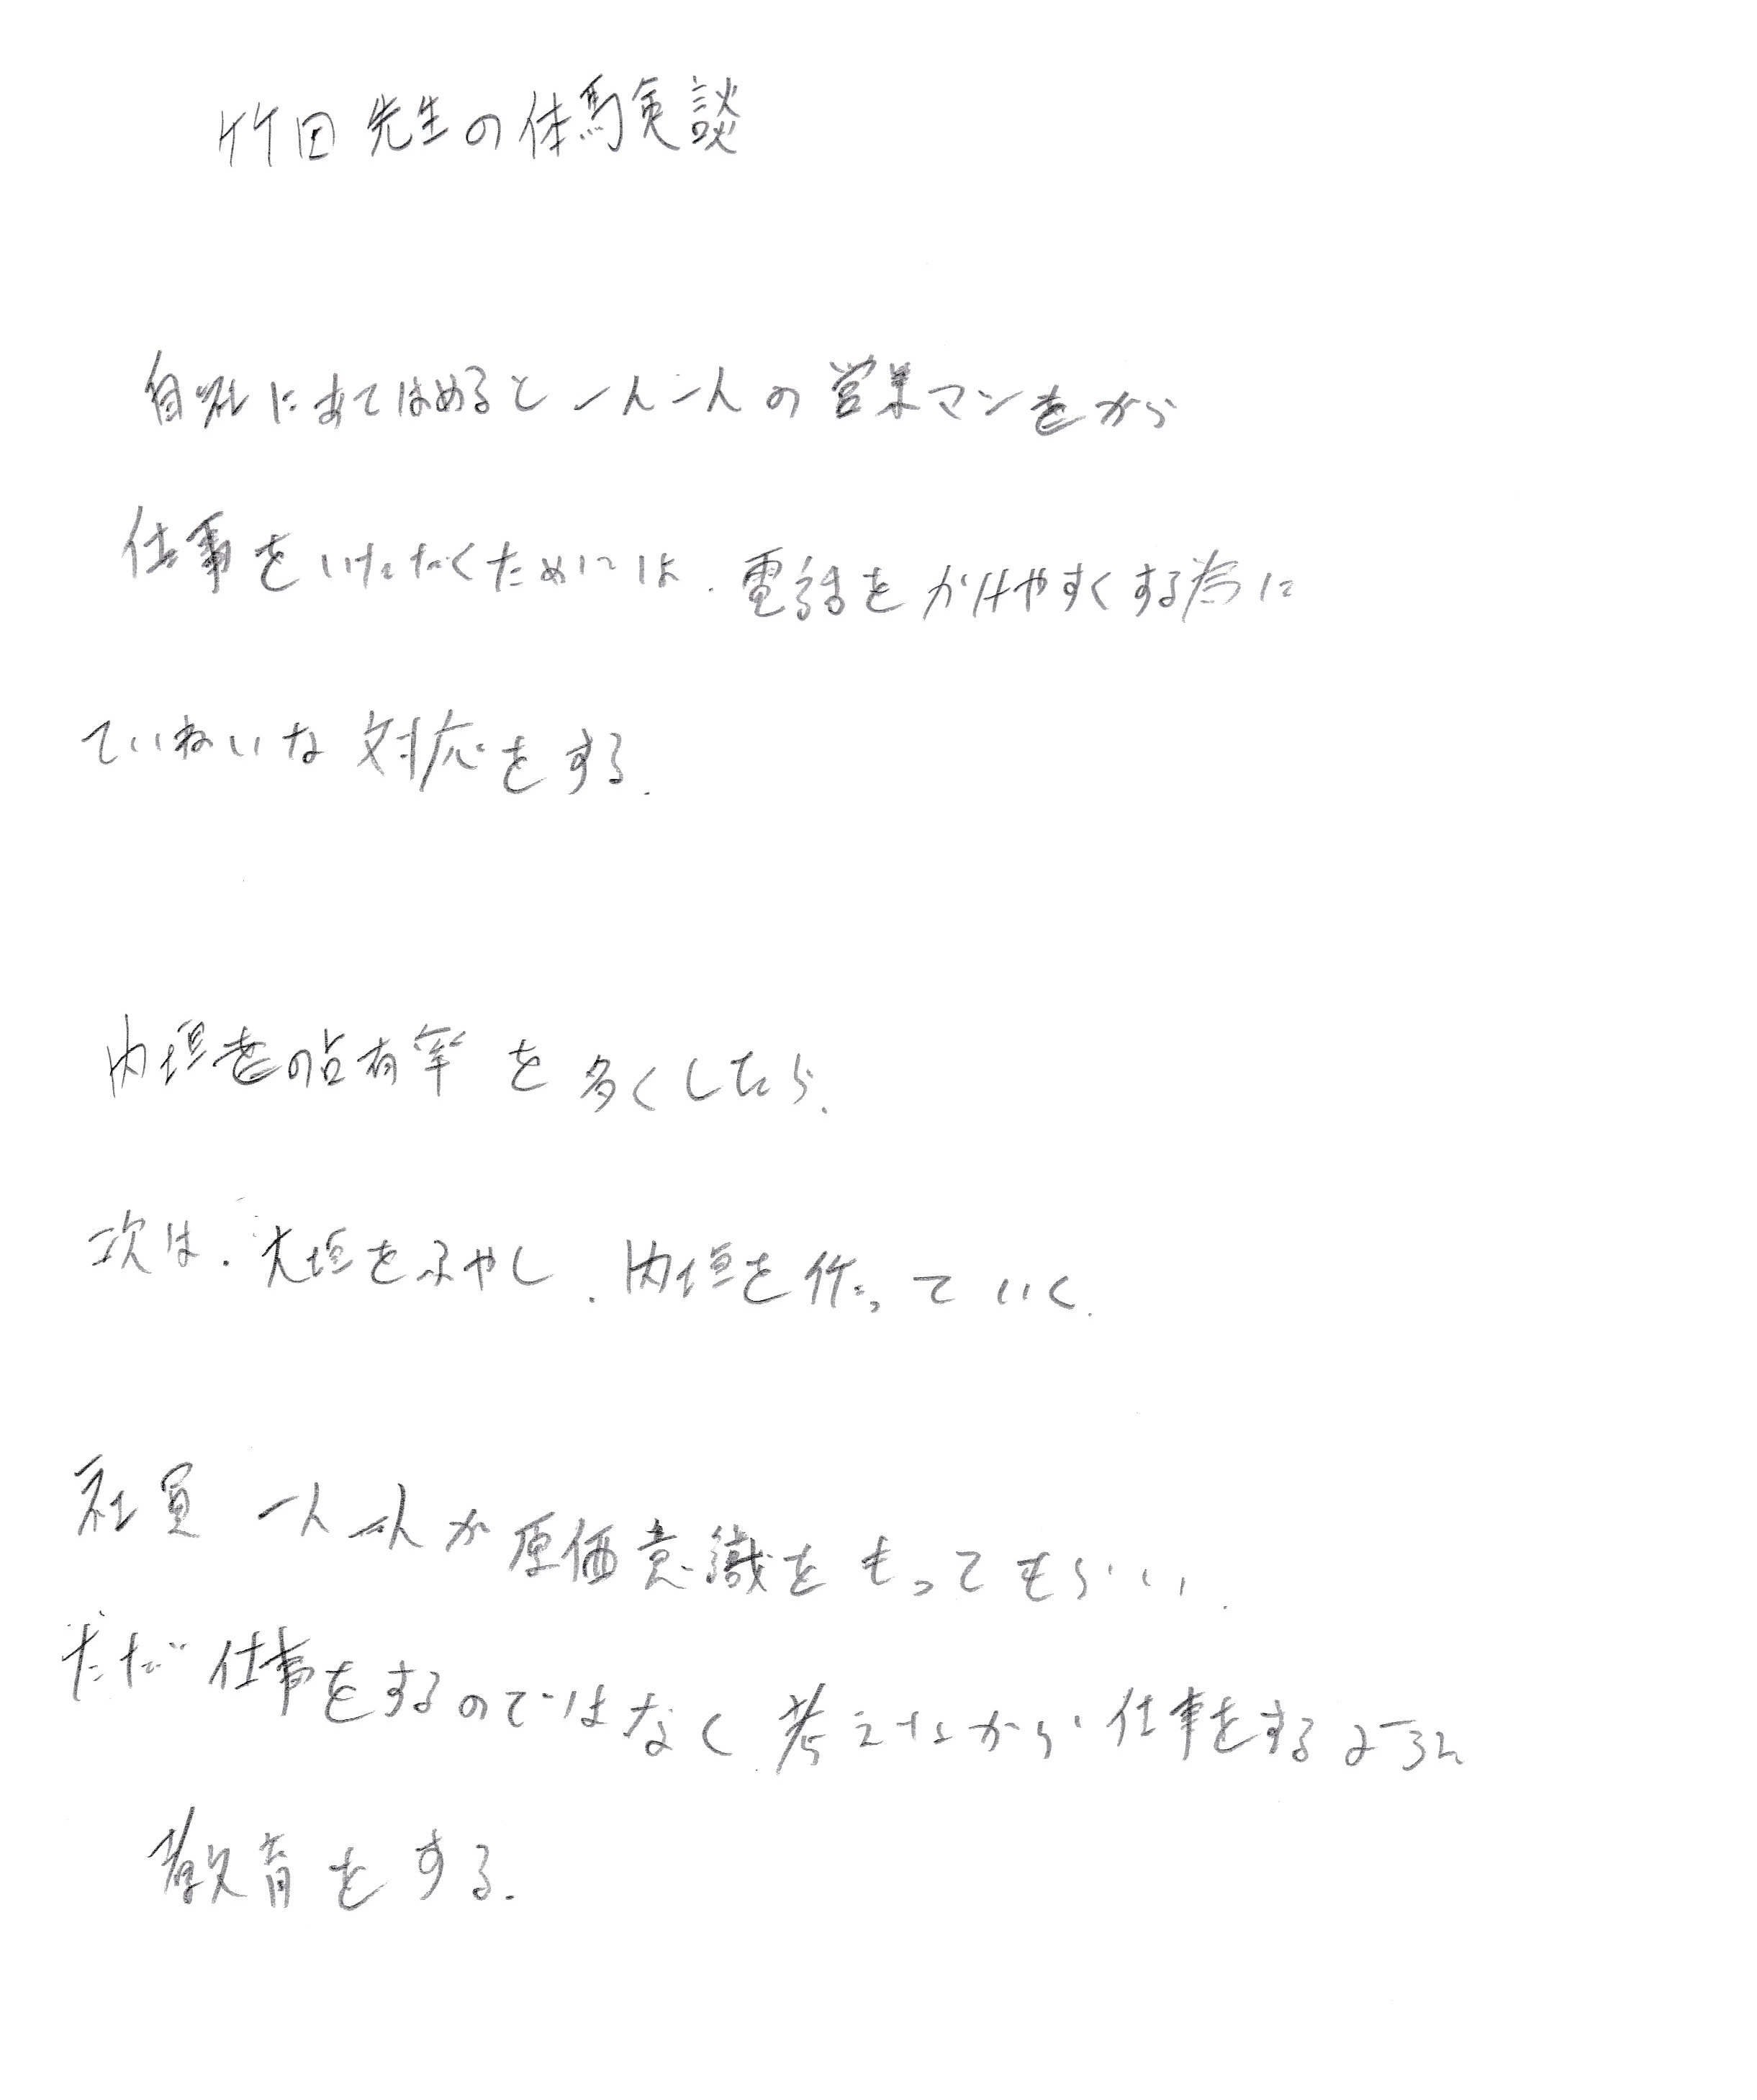 竹田先生の体験談
自社にあてはめると一人一人の営業マンをから
仕事をいただくためには、電話をかけやすくする為に
ていねいな対応をする。
内垣をの占有率を多くしたら、
次は、大垣をふやし、内垣を作っていく。
社員 一人一人が原価意識をもってもらい、
ただ仕事をするのではなく、考えながら仕事をするように
教育をする。